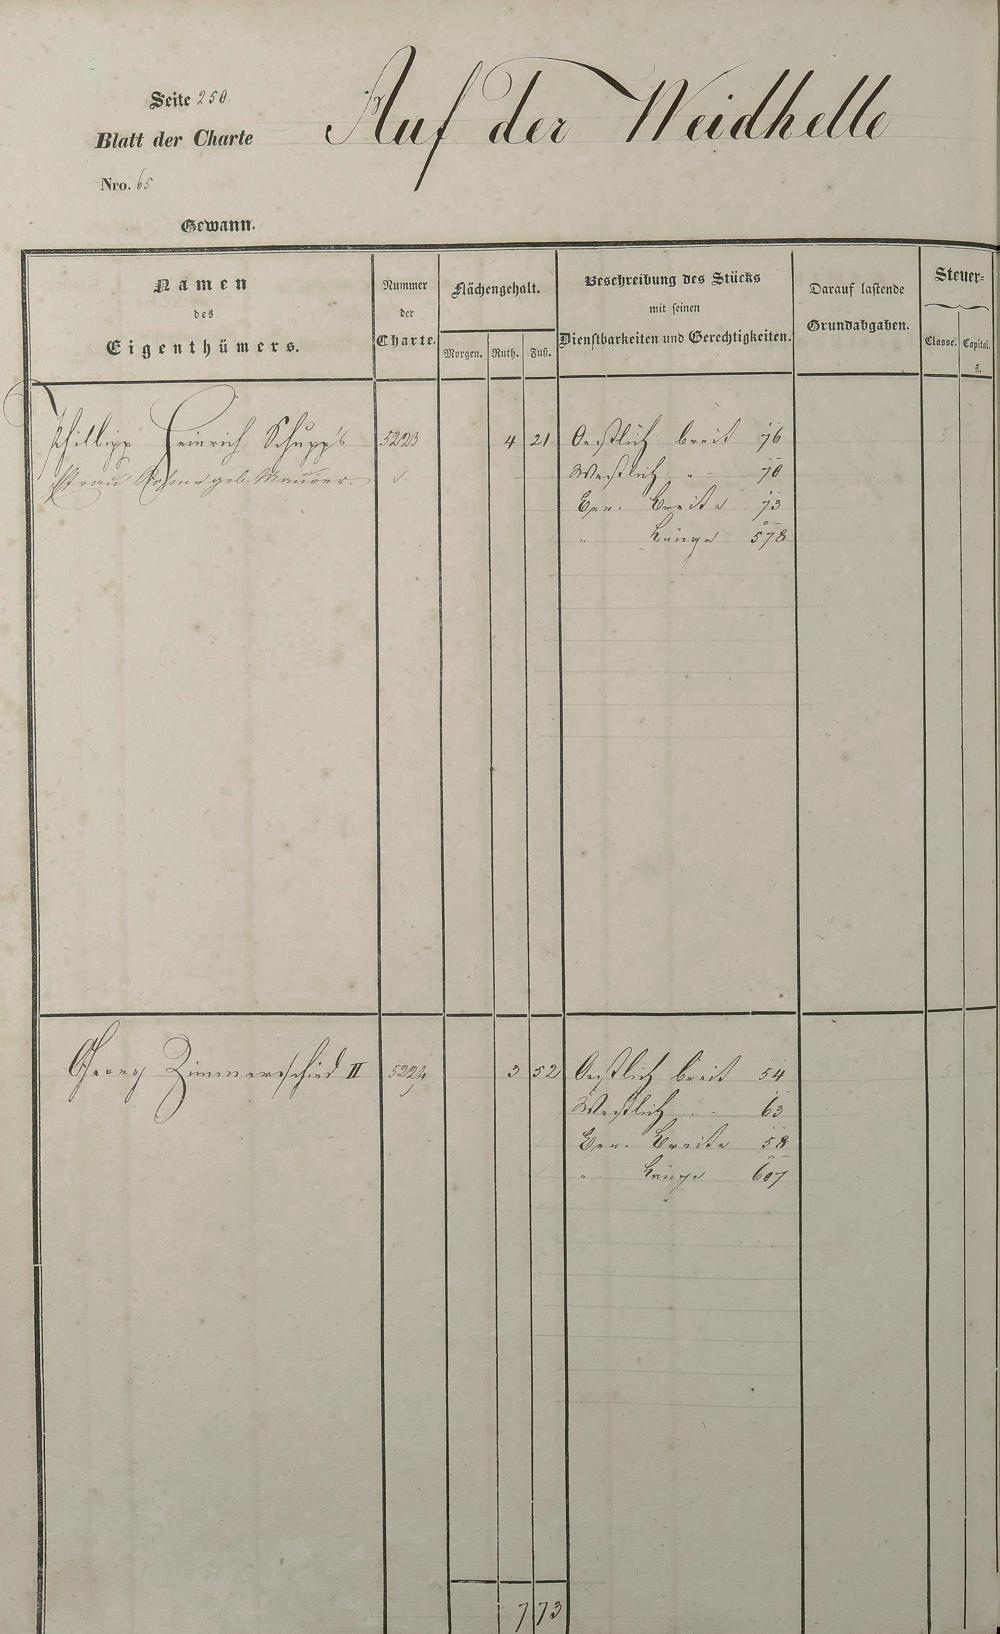 Seite 250.
Auf der Weidhelle
Blatt der Charte
Nro. 65
Gewann.
Namen
des
Eigenthümers.
Nummer
der
Charte.
Flächengehalt.
Morgen. Ruth. Fuß.
Beschreibung des Stücks
mit seinen
Dienstbarkeiten und Gerechtigkeiten.
Darauf lastende
Grundabgaben.
Steuer=
Classe. Capital.
fl.
Philipp Heinrich Schupp's 5223 4 21 Oestlich breit 76 5
Frau geb. Maurer. Westlich " 70
Gen. Breite 73
" Länge 578
Georg Zimmerschied II 5224 3 52 Oestlich breit 54 5
Westlich " 63
Gen. Breite 58
" Länge 607
7 73